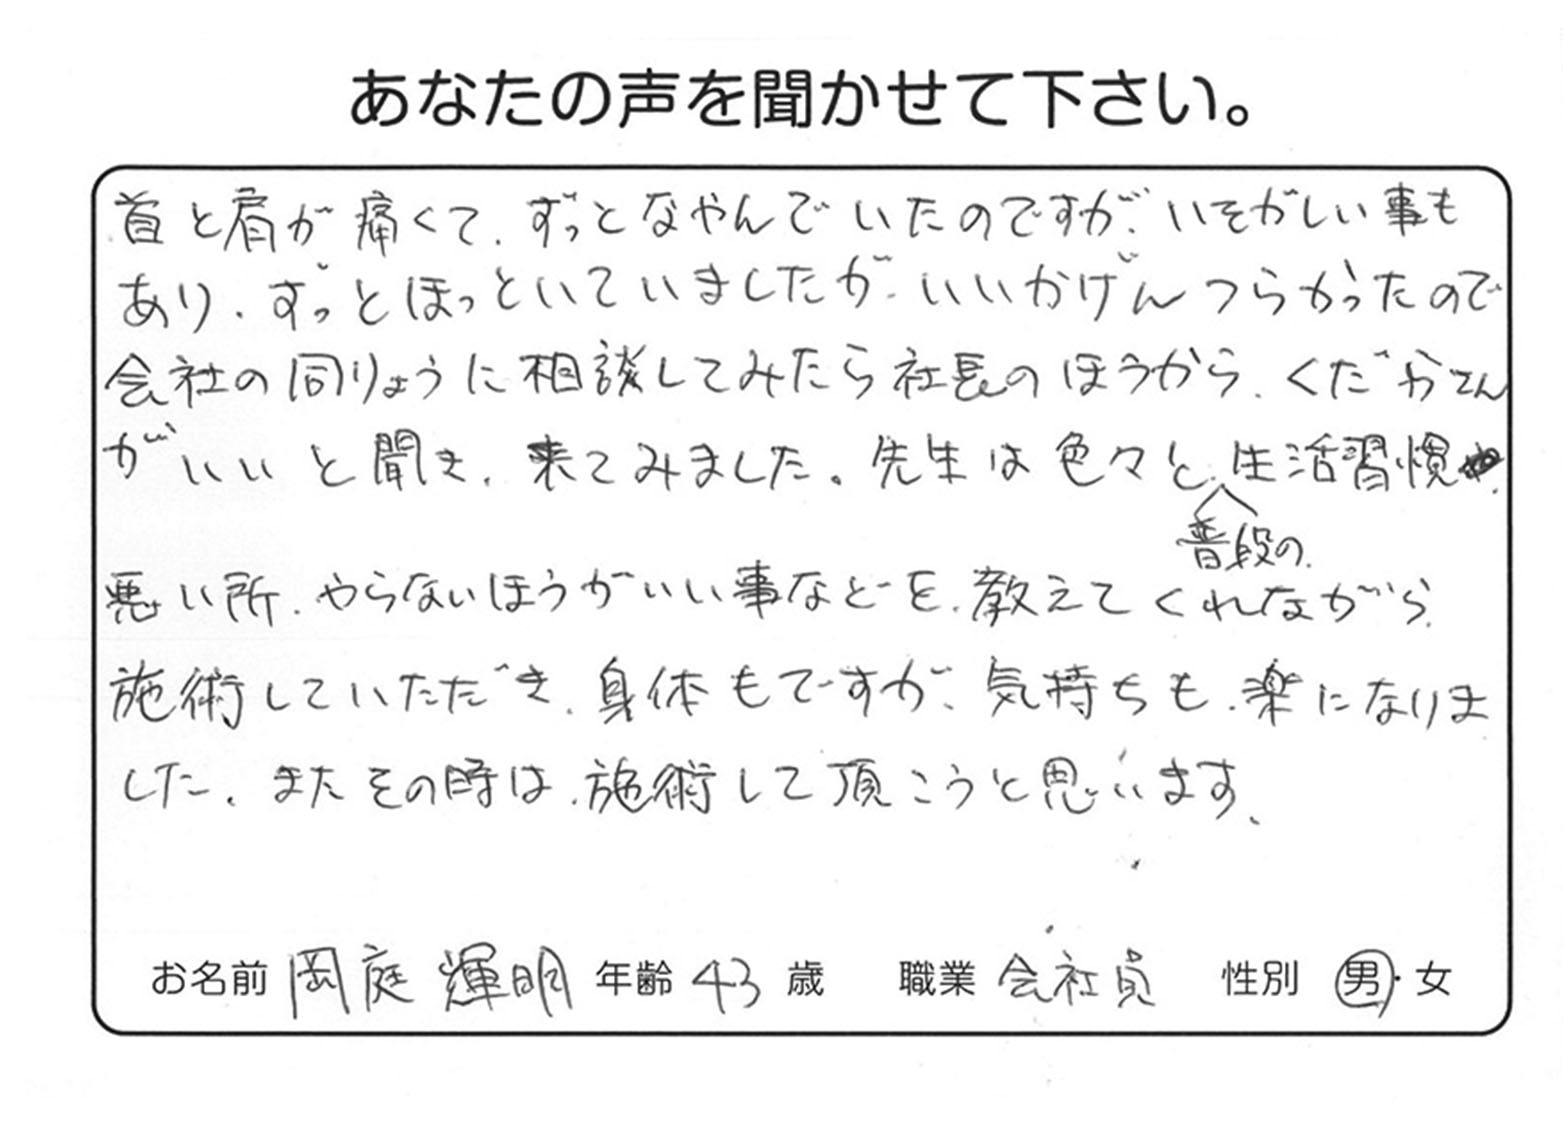 あなたの声を聞かせて下さい。
首と肩が痛くて、ずっとなやんでいたのですが、いそがしい事も
あり、ずっとほっといていましたが、いいかげんつらかったので
会社の同りょうに相談してみたら社長のほうから、くだかてん
がいいと聞き、来てみました。先生は色々と、生活習慣
普段の
悪い所、やらないほうがいい事などを、教えてくれながら、
施術していただき、身体もですが、気持ちも、楽になりま
した。またその時は、施術して頂こうと思います。
お名前 岡庭 輝明 年齢 43 歳 職業 会社員 性別 男・女